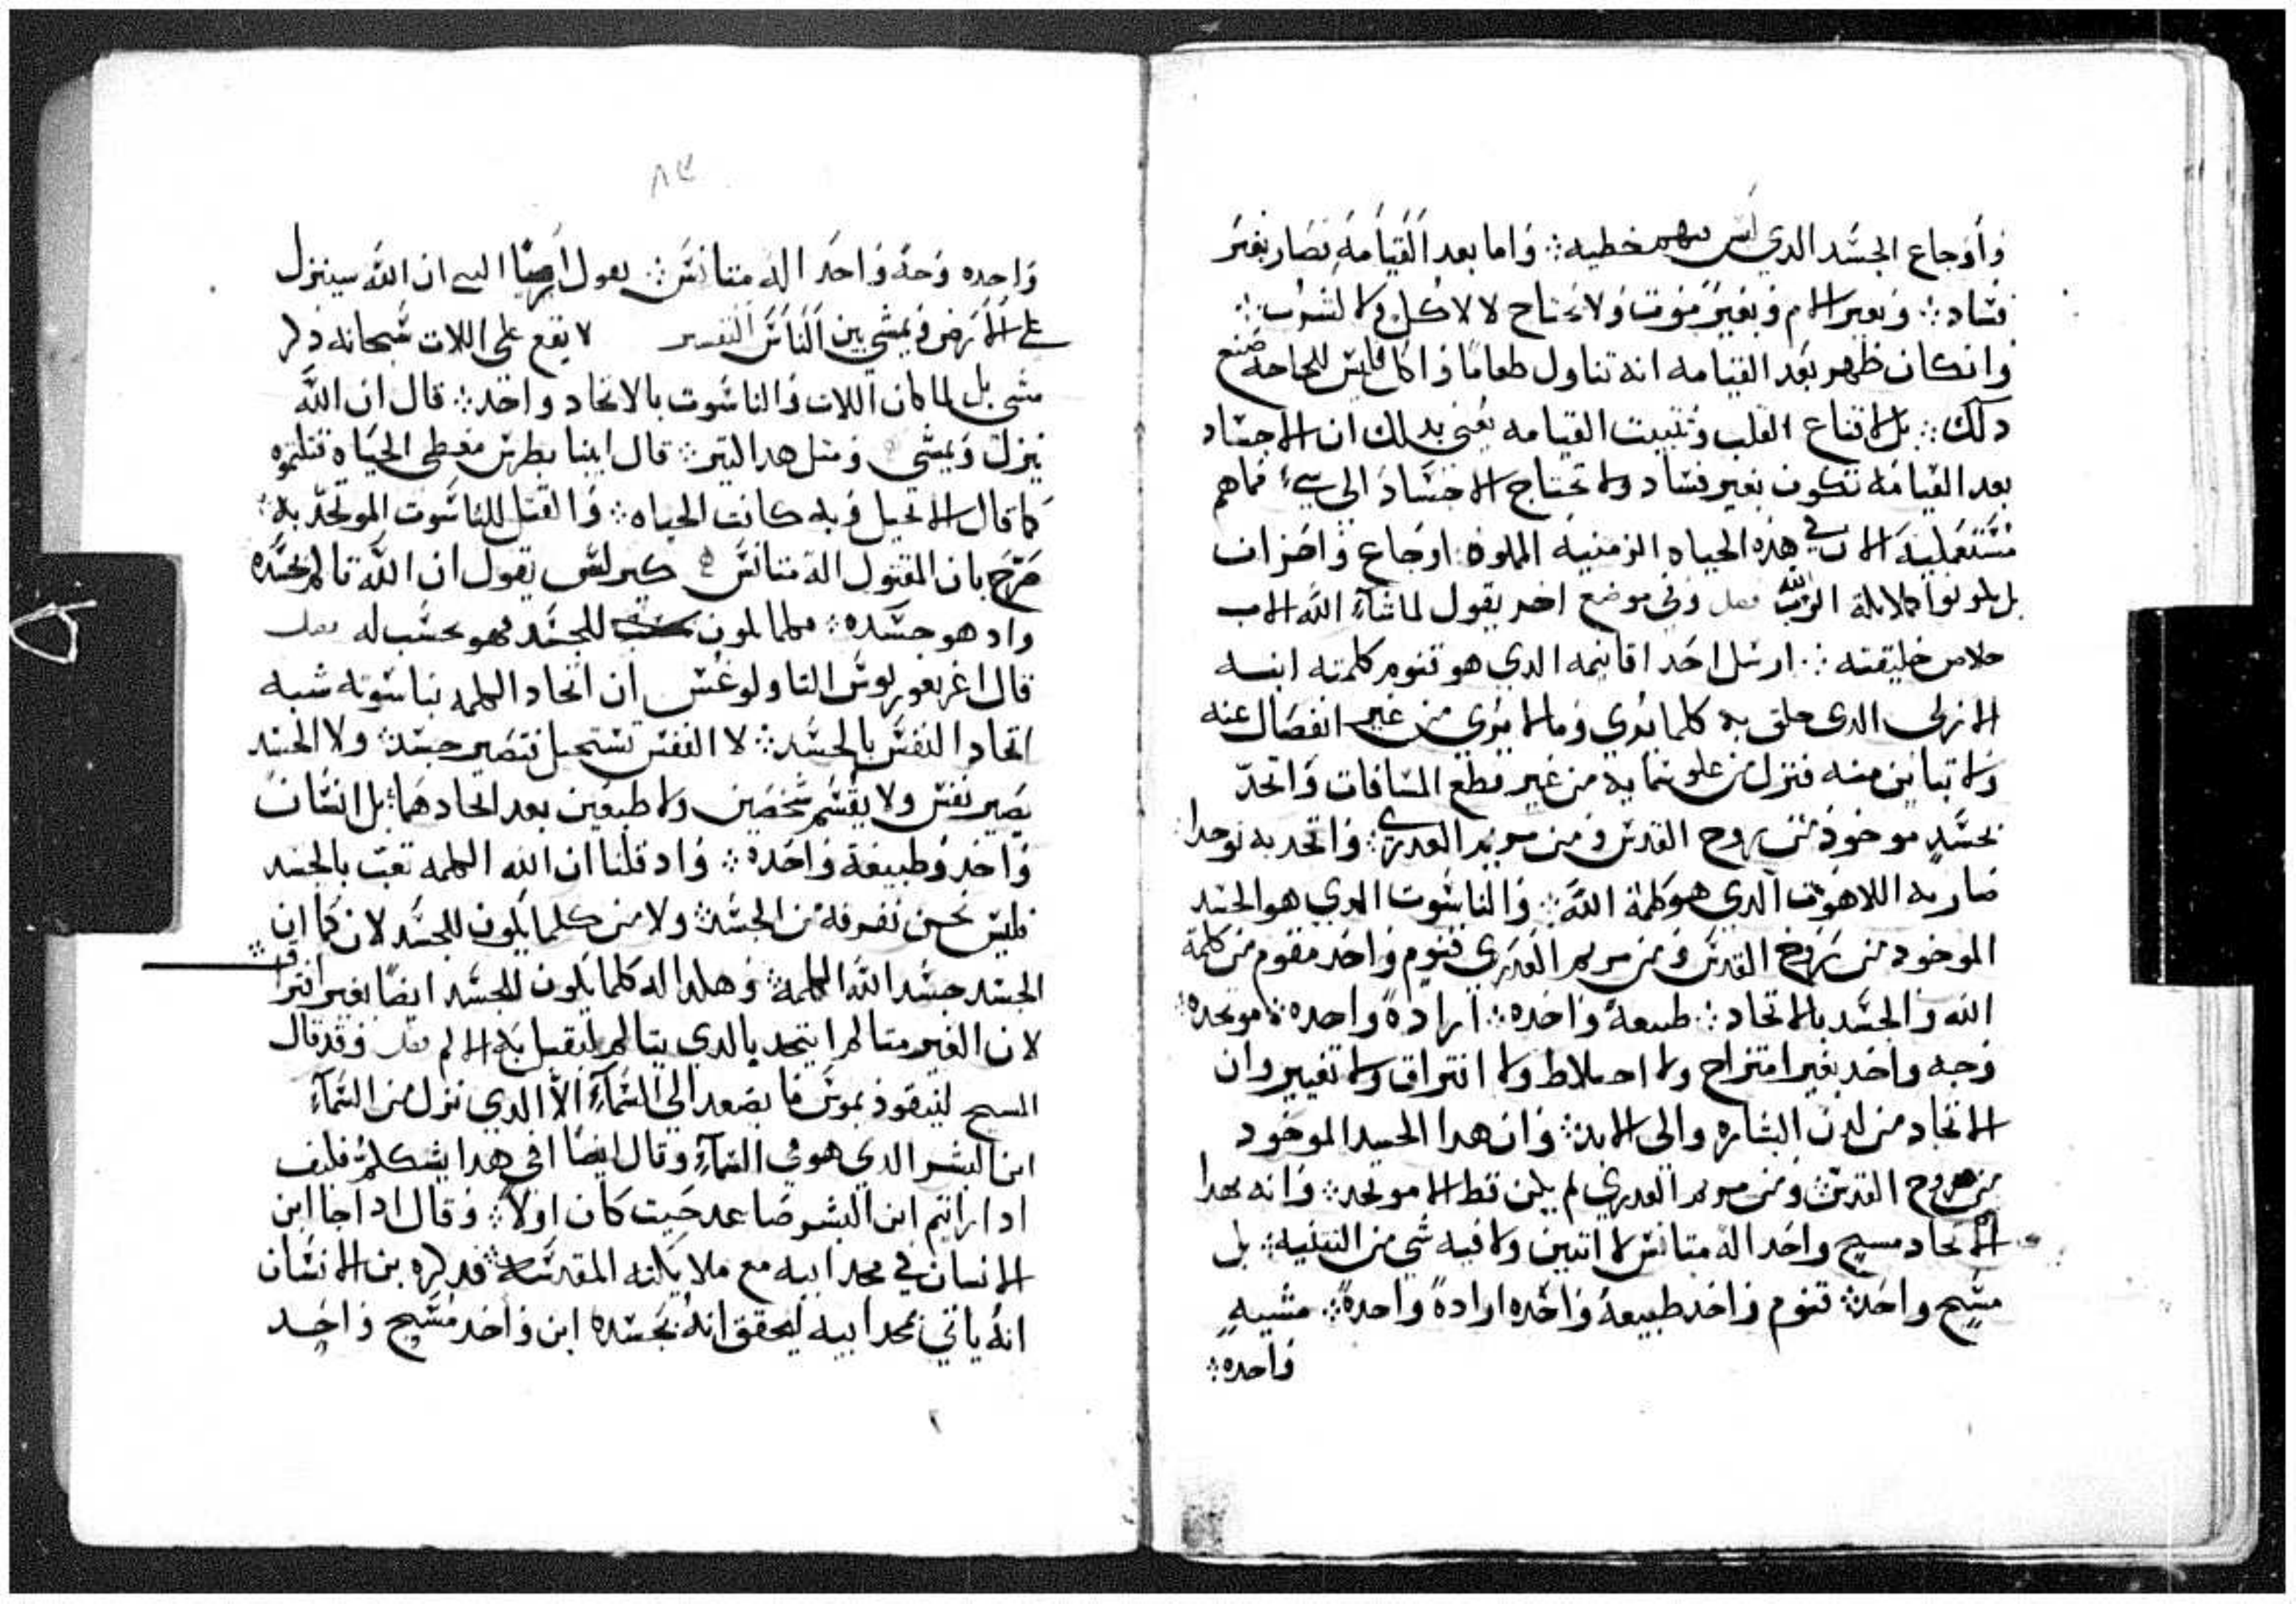 وأوجاع الجسد الدي ليس فيهم خطيه ؞ واما بعد القيامه فصار بغير
فساد ؞ وبغير الام وبغير موت ولا يحتاج لا لاكل ولا لشرب ؞
وانكان ظهر بعد القيامه انه تناول طعاما واكل فليس للحاجه صنع
دلك ؞ بل لاقناع القلب وتثبيت القيامه يعني بدلك ان الاجساد
بعد القيامه تكون بغير فساد ولا تحتاج الاجساد الي شيء مماهم
مستعمليه الان في هذه الحياه الزمنيه المملوه اوجاع واحزان
بل يكونوا كملايكة الرب الله فصل وفي موضع اخر يقول لما شآء الله الاب
خلاص خليقته ؞ ارسل احد اقانيمه الدي هو قنوم كلمته ابنه
الازلي الدي خلق به كلما يري وما لا يري من غير انفصال عنه
ولا تباين منه فنزل من علو سمايه من غير قطع المسافات واتحد
بجسد موخوذ من روح القدس ومن مريم العدري ؞ واتحد به توحدا
صار به اللاهوت الدي هو كلمة الله ؞ والناسوت الدي هو الجسد
الموخود من روح القدس ومن مريم العدري قنوم واحد مقوم من كلمة
الله والجسد بالاتحاد ؞ طبيعة واحده ؞ ارادة واحده ؞ موتحده ؞
وجه واحد بغير امتزاج ولا اختلاط ولا افتراق ولا تغيير وان
الاتحاد من لدن البشاره والي الابد ؞ وان هدا الجسد الموخود
من روح القدس ومن مريم العدري لم يكن قط الا موتحد ؞ وانه بهدا
الاتحاد مسيح واحد اله متانس لا اتنين ولا فيه شي من التتنيه ؞ بل
مسيح واحد ؞ قنوم واحد طبيعة واحده ارادة واحدة ؞ مشييه
واحده ؞
٨٤
واحده وجه واحد اله متانس ؞ يقول ارميا النبي ان الله سينزل
علي الارض ويمشي بين الناس التفسير لا يقع علي اللات سبحانه دكر
مشي بل لما كان اللات والناسوت بالاتحاد واحد ؞ قال ان الله
نزل ويمشي ومتل هدا السر ؞ قال ابينا بطرس معطي الحياه قتلتموه
كما قال الانجيل وبه كانت الحياه ؞ والقتل للناسوت الموتحد به ؞
صرح بان المقتول اله متانس كيرلس يقول ان الله تالم بجسده
واد هو جسده ؞ فكلما يكون للجسد فهو يحسب له فصل
قال اغريغوريوس التاولوغس ان اتحاد الكلمه بناسوته شبه
اتحاد النفس بالجسد ؞ لا النفس تستحيل فتصير جسد ؞ ولا الجسد
يصير نفس ولا يقسم شخصين ولا طبعين بعد اتحادهما ؞ بل انسان
واحد وطبيعة واحده ؞ واد قلنا ان الله الكلمه تعب بالجسد
فليس نحسن نفرقه من الجسد ؞ ولا من كلما يكون للجسد لان كما ان
الجسد جسد الله الكلمة ؞ وهكدا اله كلما يكون للجسد ايضا بغير افتراق ؞
لان الغير متالم اتحد بالدي يتالم ليقبل به الالم فصل وقد قال
المسيح لنيقوذيموس ما يصعد الي السمآء الا الدي نزل من السمآء
ابن البشر الدي هو في السمآء وقال ايضا افي هدا يشككم فكيف
ادا رايتم ابن البشر صاعد حيت كان اولا ؞ وقال ادا جا ابن
الانسان في مجد ابيه مع ملايكته المقدسه ؞ فدكره بن الانسان
انه ياتي بمجد ابيه ليحقق انه بجسده ابن واحد مسيح واحد